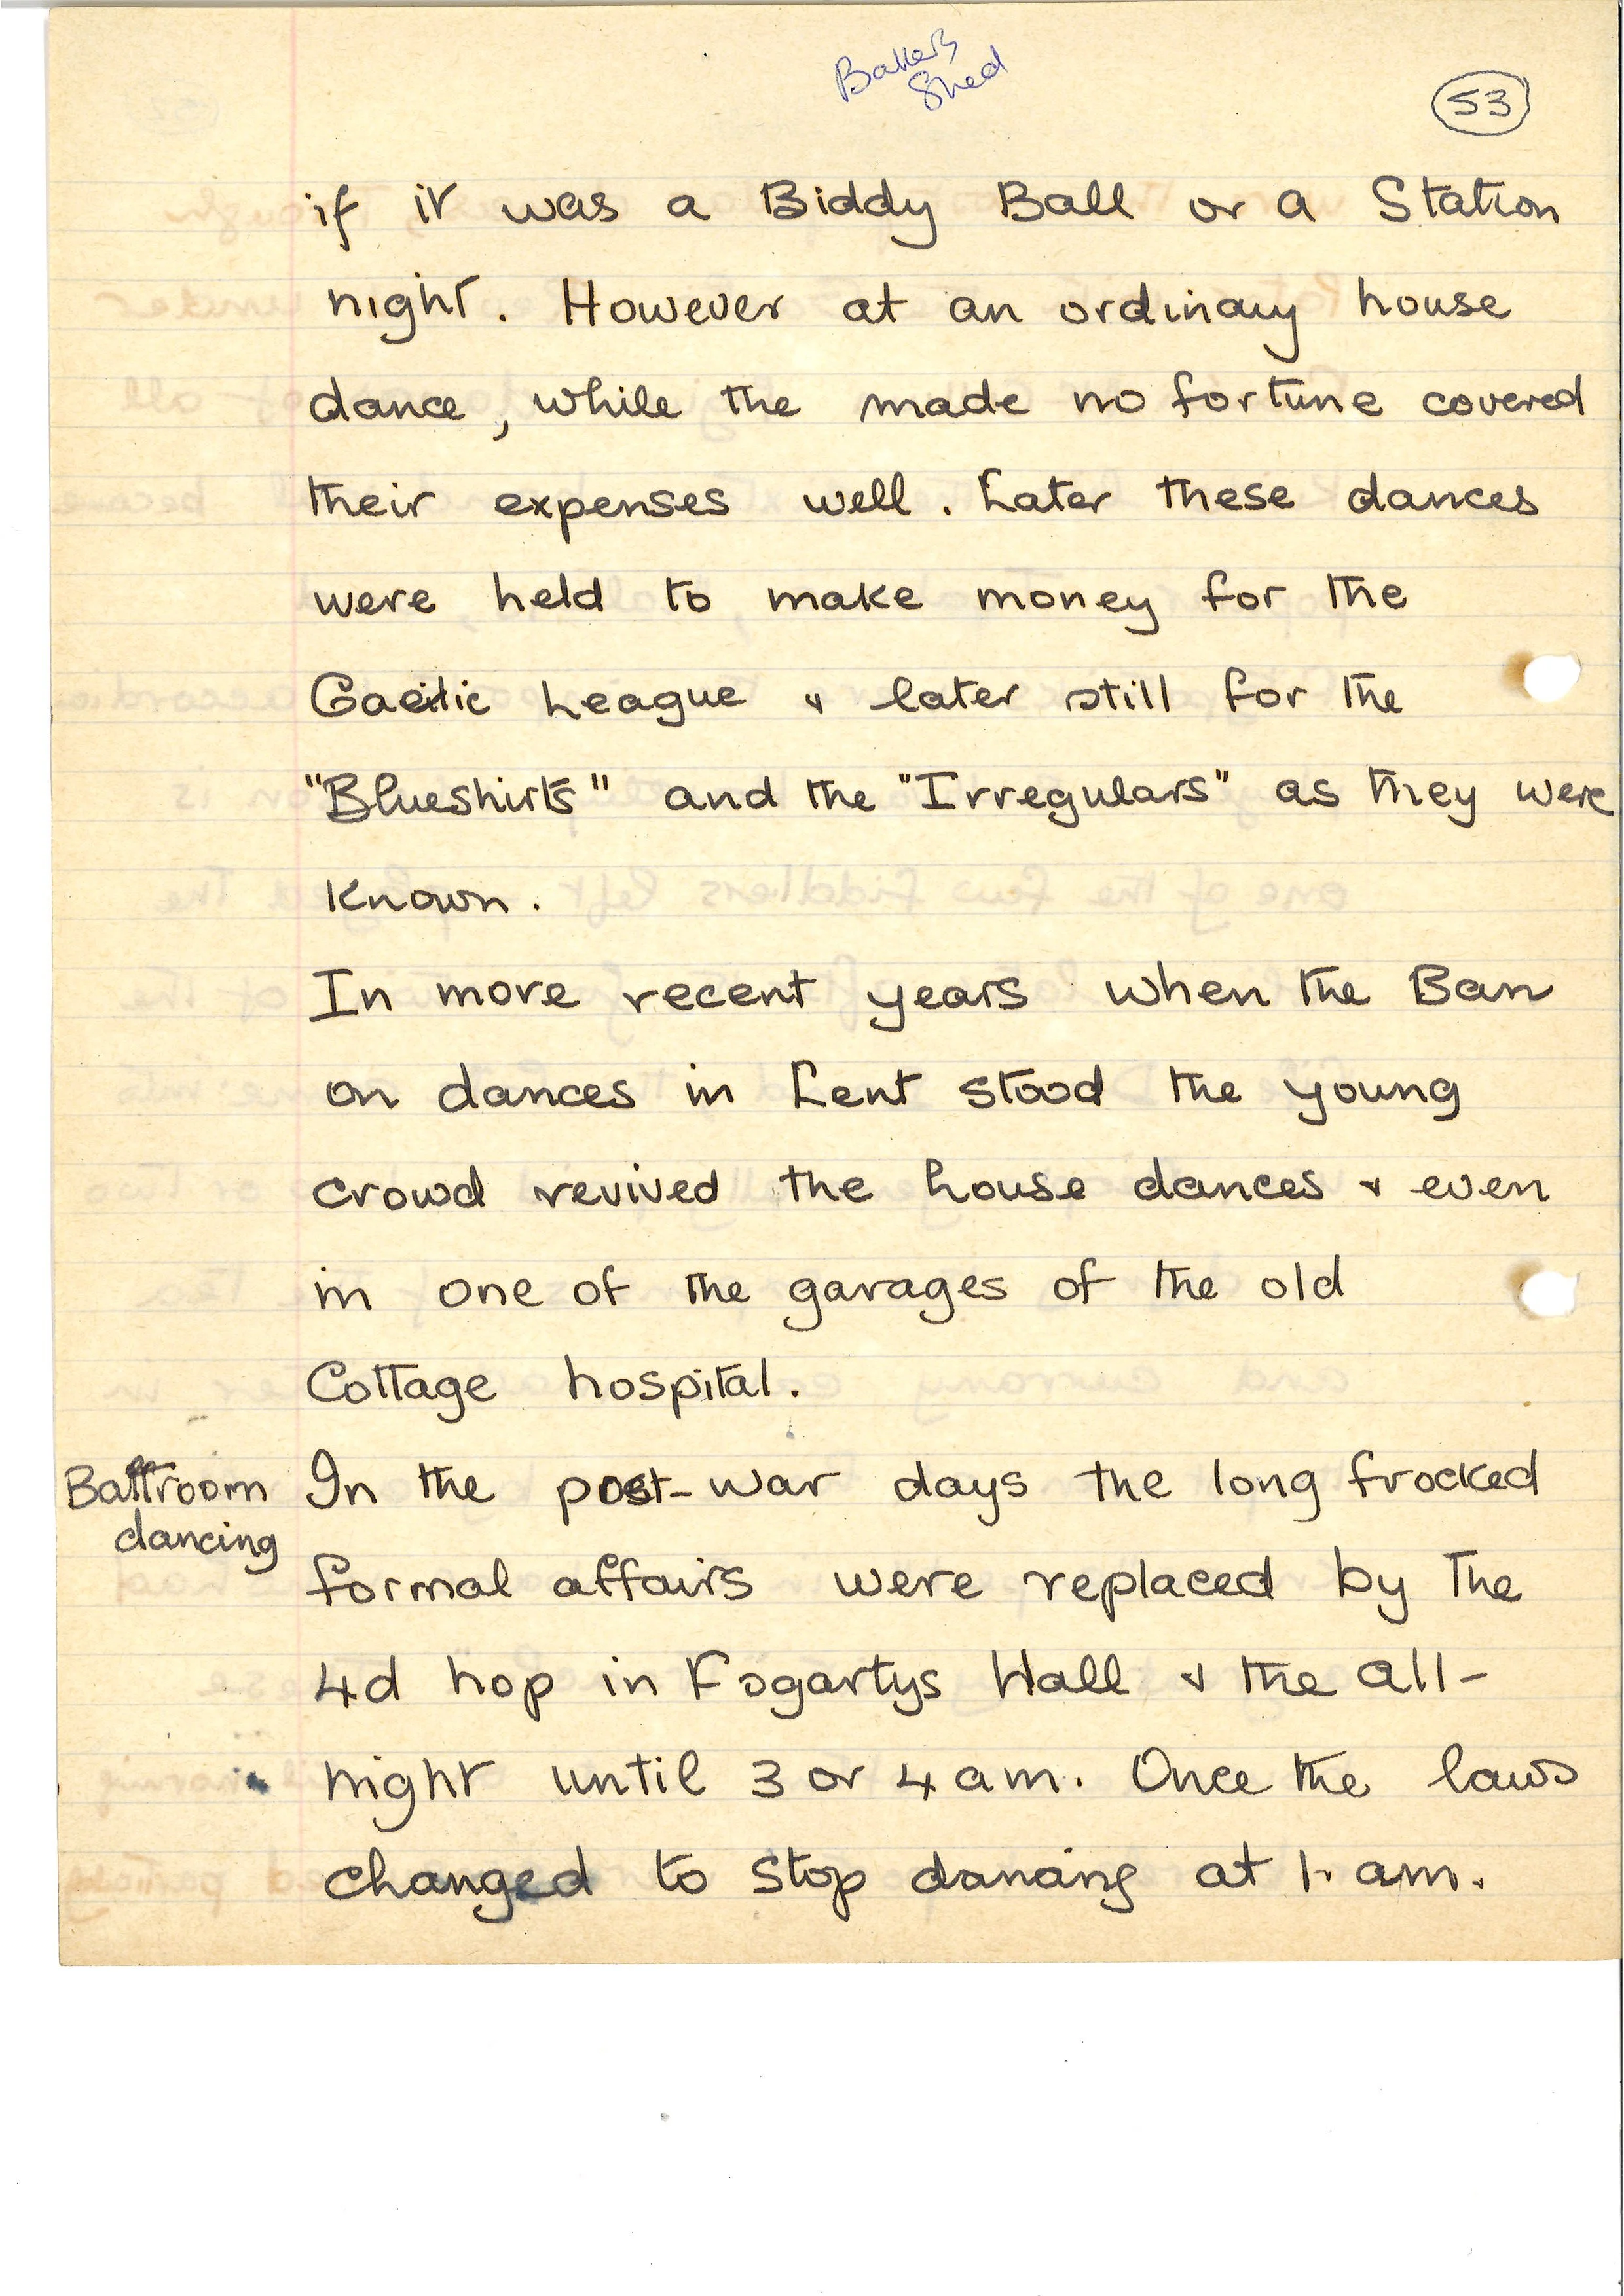 Bakers
Shed
53
if it was a Biddy Ball or a Station
night. However at an ordinary house
dance, while the made no fortune covered
their expenses well. Later these dances
were held to make money for the
Gaelic League & later still for the
"Blueshirts" and the "Irregulars" as they were
known.
In more recent years when the Ban
on dances in Lent stood the young
crowd revived the house dances & even
in one of the garages of the old
Cottage hospital.
Ballroom
dancing
In the post-war days the long frocked
formal affairs were replaced by the
4d hop in Fogartys Hall & the all-
night until 3 or 4 am. Once the laws
changed to stop dancing at 1. am.